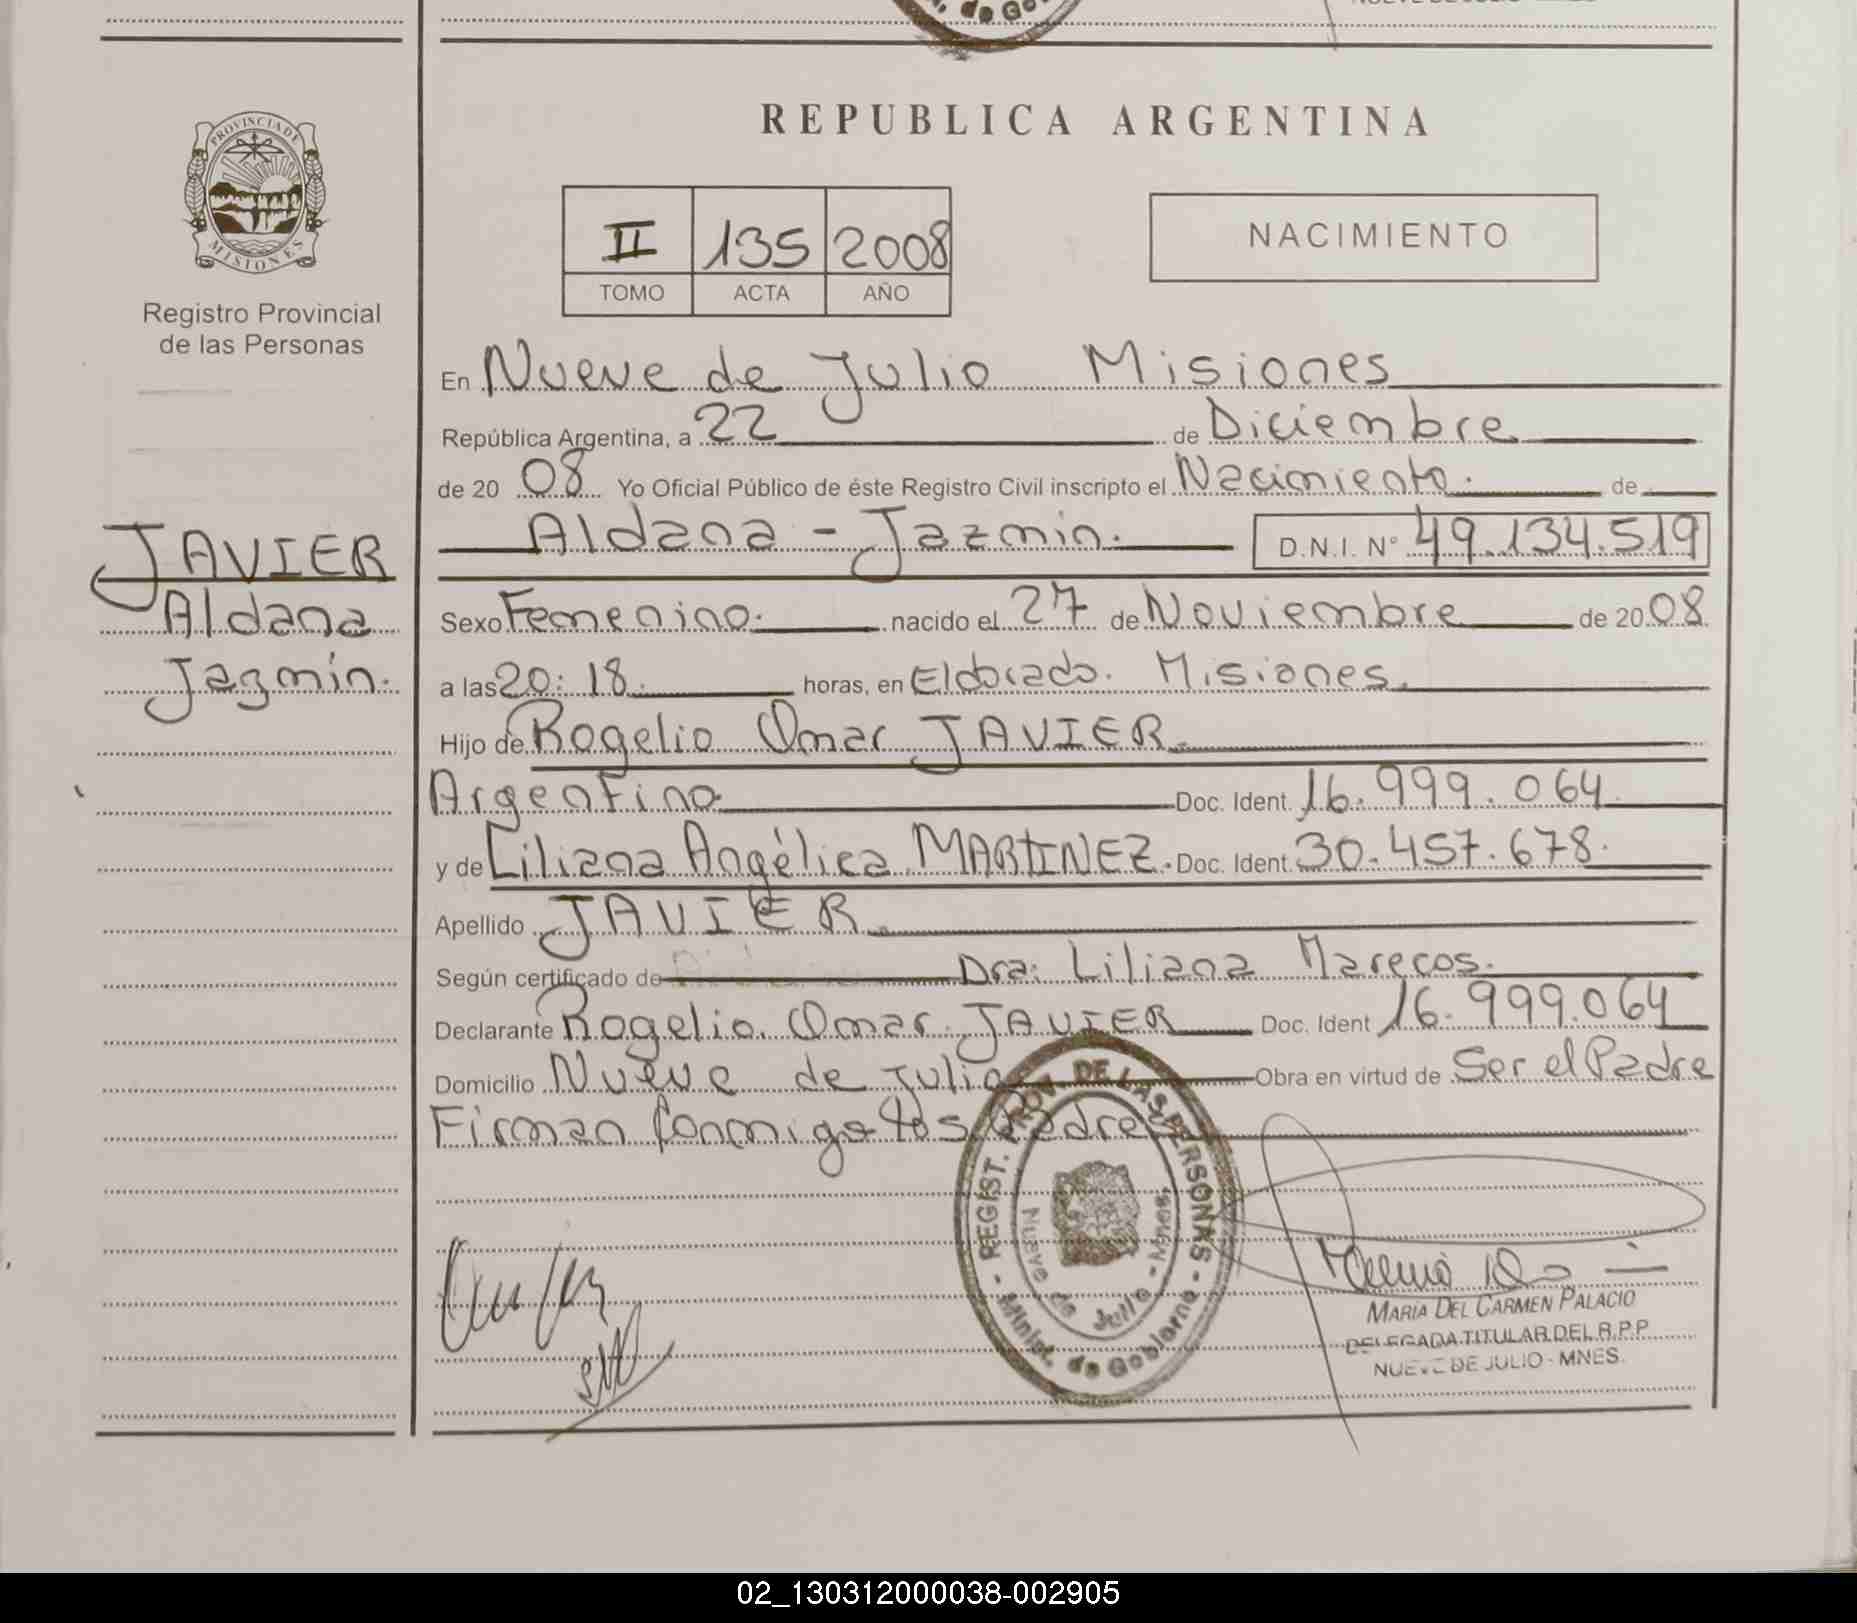 REPUBLICA ARGENTINA
PROVINCIA DE MISIONES
Registro Provincial
de las Personas
II 135 2008
TOMO ACTA AÑO
NACIMIENTO
En Nueve de Julio Misiones
República Argentina, a 22 de Diciembre
de 20 08 Yo Oficial Público de éste Registro Civil inscripto el Nacimiento. de
Aldana - Jazmin. D.N.I. N° 49.134.519
JAVIER
Aldana
Jazmin.
Sexo Femenino. nacido el 27 de Noviembre de 20 08
a las 20:18. horas, en Eldorado. Misiones.
Hijo de Rogelio Omar JAVIER.
Argentino Doc. Ident. 16.999.064
y de Liliana Angélica MARTINEZ. Doc. Ident. 30.457.678.
Apellido JAVIER.
Según certificado de Dra: Liliana Marecos.
Declarante Rogelio Omar JAVIER Doc. Ident 16.999.064
Domicilio Nueve de Julio Obra en virtud de Ser el Padre
Firman Conmigo los Padres
REGIST. PROV. DE LAS PERSONAS - Minist. de Gobierno -
Nueve de Julio - Mnes.
MARIA DEL CARMEN PALACIO
DELEGADA TITULAR DEL R.P.P.
NUEVE DE JULIO - MNES.
02_130312000038-002905